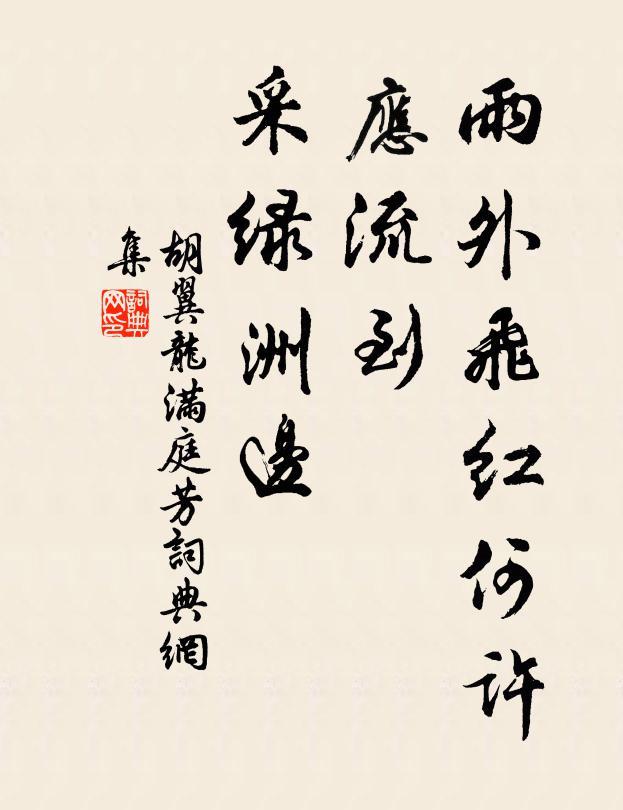 雨外飛紅何許
應流到
采緑洲邊
胡翼龍滿庭芳詞典網
集
詞典網印